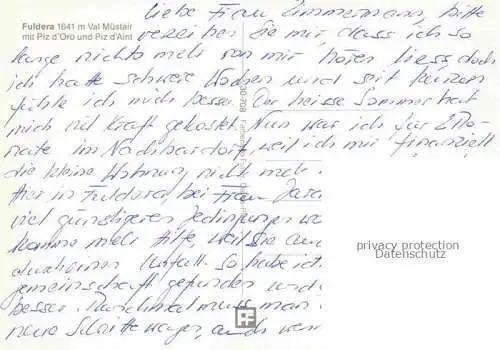 Fuldera 1641 m Val Müstair
mit Piz d'Oro und Piz d'Aint
Liebe Frau Zimmermann, bitte
verzeihen Sie mir, dass ich so
lange nichts mehr von mir hören liess, doch
ich hatte schwere Wochen und seit kurzem
fühle ich mich besser. Der heisse Sommer hat
mich viel Kraft gekostet. Nun war ich für 2 Mo-
nate im Nachbardorf, weil ich mir finanziell
die kleine Wohnung nicht mehr
Hier in Fuldera, bei Frau
viel günstigeren Bedingungen
komme mehr Hilfe, weil sie
Unfall. So habe ich
gemeinschaft gefunden und
besser. Manchmal muss man
neue Schritte wagen, auch wenn
30-708
privacy protection
Datenschutz